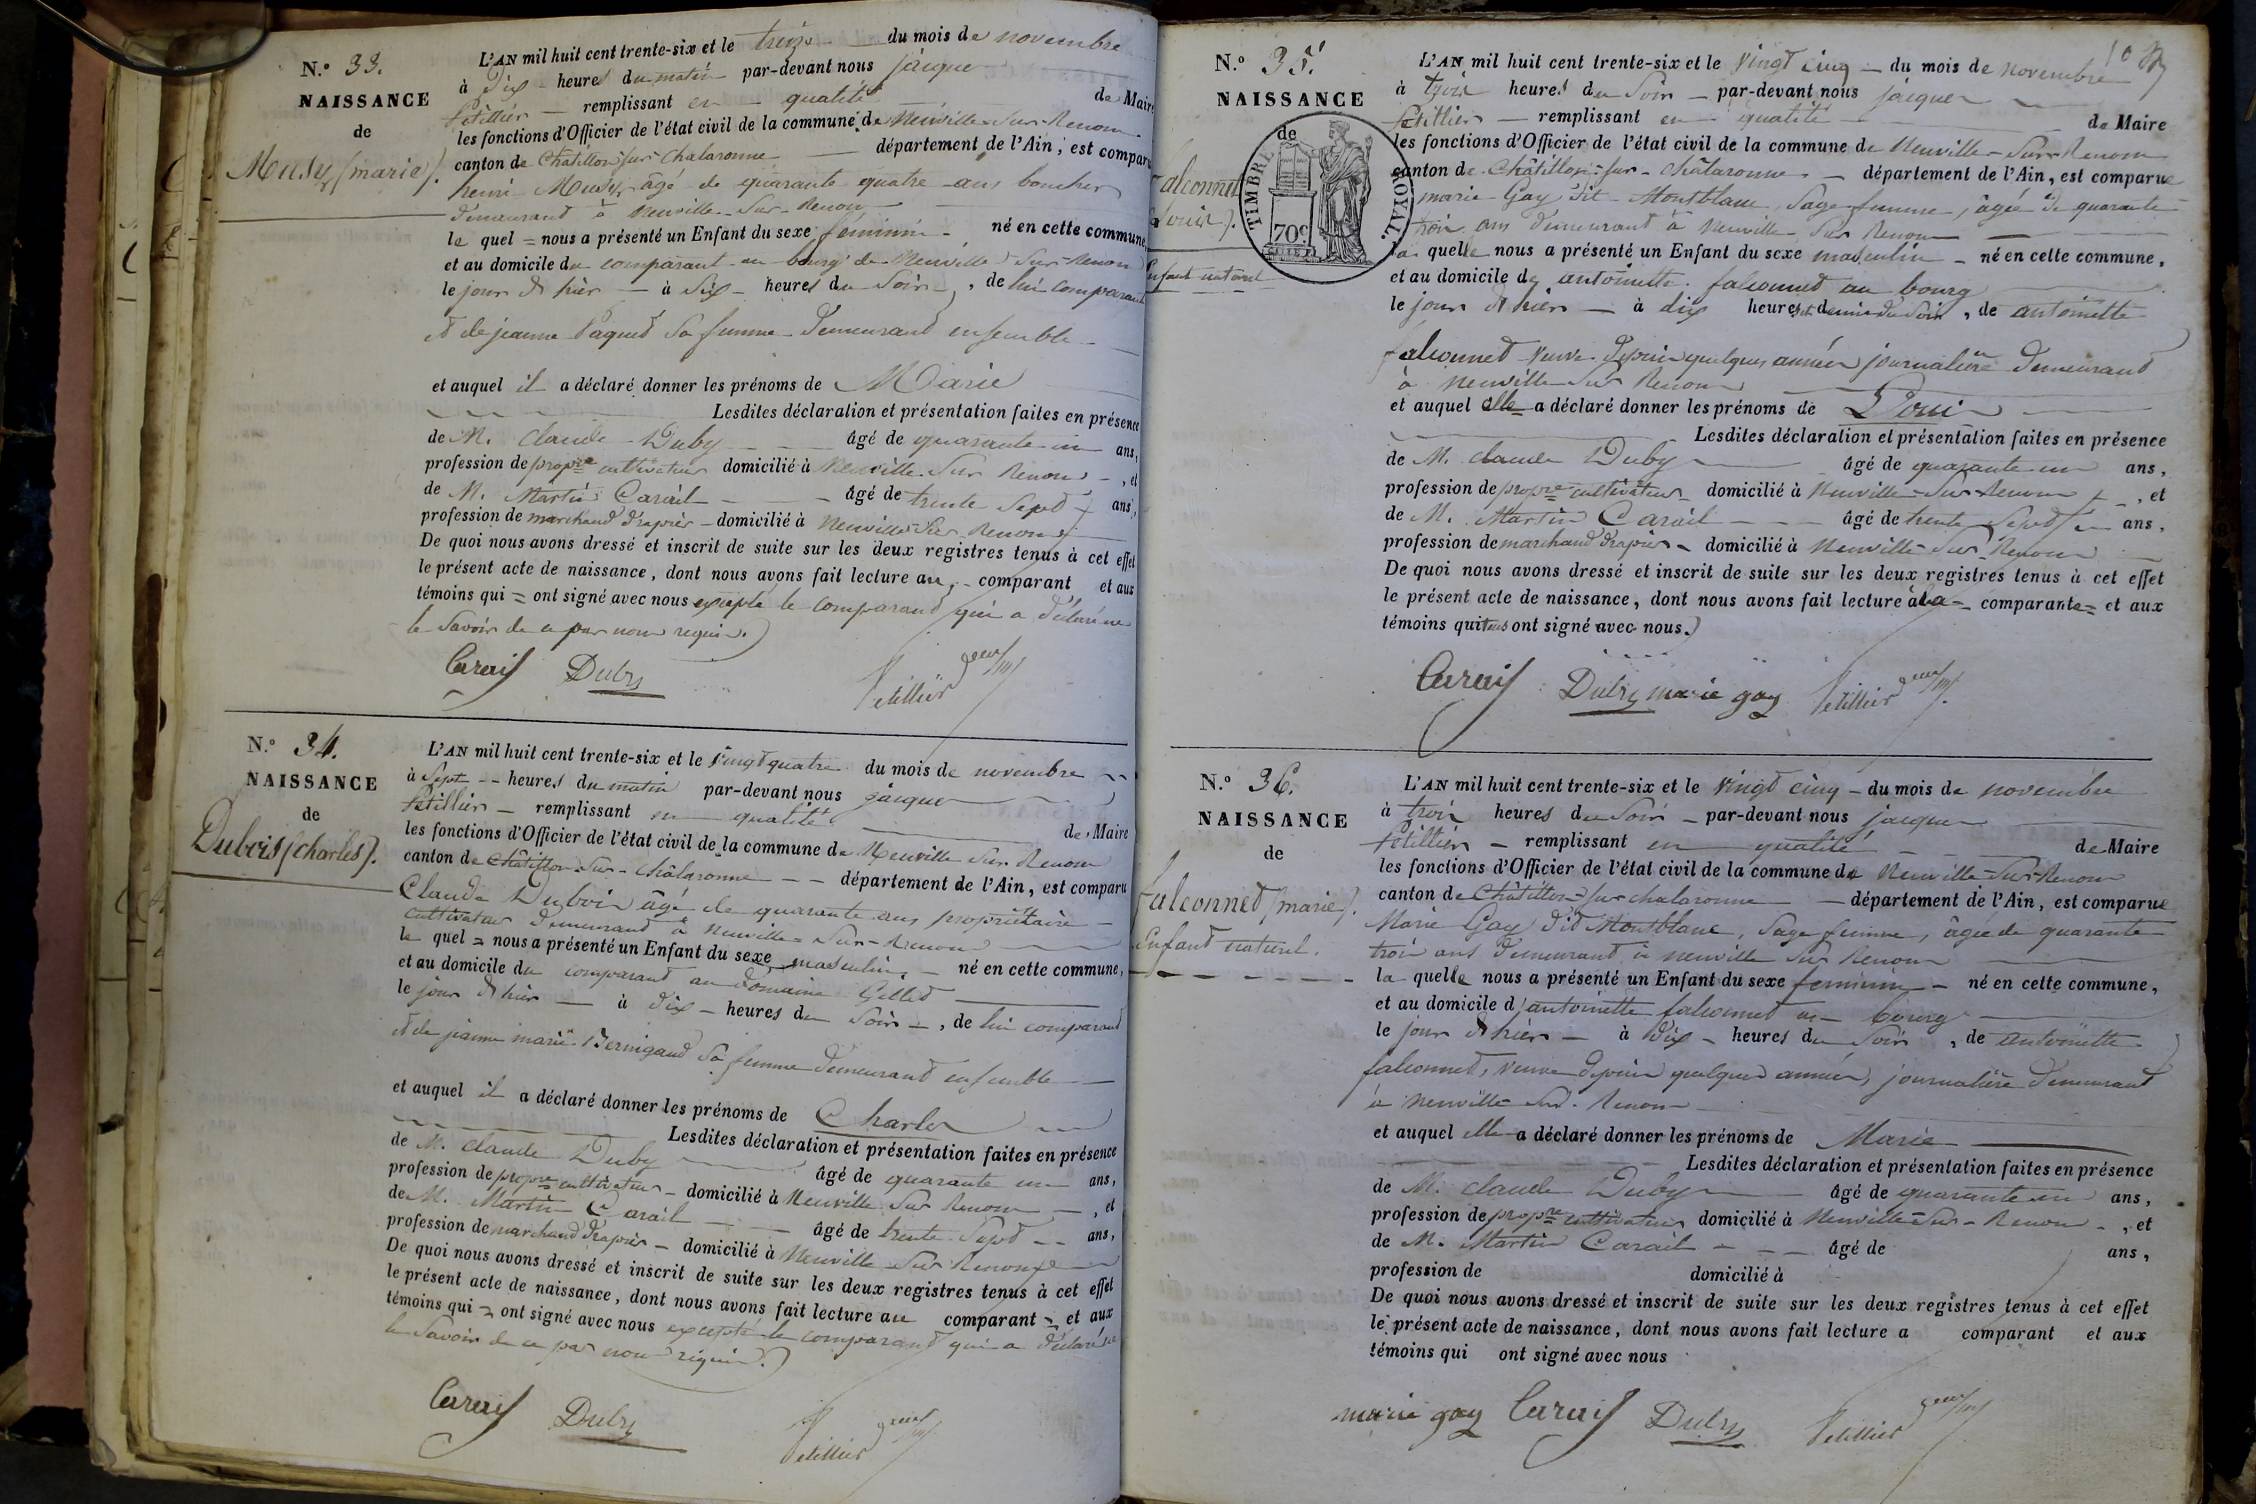 N.º 33.
NAISSANCE
de
Mudry (marie).
L'AN mil huit cent trente-six et le treize du mois de novembre
à Dix heures du matin par-devant nous jacque
Petillier remplissant en qualité de Maire
les fonctions d'Officier de l'état civil de la commune de Neuville-Sur-Renom
canton de Châtillon sur Chalaronne département de l'Ain, est comparu
henri âgé de quarante quatre ans boucher
demeurant à Neuville-Sur-Renom
le quel = nous a présenté un Enfant du sexe féminin né en cette commune
et au domicile du comparant au bourg de Neuville Sur-Renom
le jour d'hier à Six heures du Soir, de lui comparant
et de jeanne Paqued Sa femme demeurant ensemble
et auquel il a déclaré donner les prénoms de Marie
Lesdites déclaration et présentation faites en présence
de M. claude Duby âgé de quarante un ans,
profession de propre cultivateur domicilié à Neuville Sur Renom, et
de M. Martin Carail âgé de trente Sept ans,
profession de marchand drapier domicilié à Neuville Sur Renom
De quoi nous avons dressé et inscrit de suite sur les deux registres tenus à cet effet
le présent acte de naissance, dont nous avons fait lecture au comparant et aux
témoins qui = ont signé avec nous excepté le comparant qui a déclaré ne
le Savoir de ce par nous requis.)
Carail Duby Petillier
N.º 34.
NAISSANCE
de
Dubois (charles).
L'AN mil huit cent trente-six et le vingt quatre du mois de novembre
à Sept heures du matin par-devant nous jacque
Petillier remplissant en qualité de Maire
les fonctions d'Officier de l'état civil de la commune de Neuville Sur Renom
canton de Châtillon-Sur-Châlaronne département de l'Ain, est comparu
Claude Dubois âgé de quarante ans propriétaire
cultivateur demeurant à Neuville-Sur-Renom
le quel = nous a présenté un Enfant du sexe masculin né en cette commune,
et au domicile du comparant au domaine Gelled
le jour d'hier à dix heures du Soir, de lui comparant
et de jeanne marie Bernigaud Sa femme demeurant ensemble
et auquel il a déclaré donner les prénoms de Charles
Lesdites déclaration et présentation faites en présence
de M. claude Duby âgé de quarante un ans,
profession de propre cultivateur domicilié à Neuville Sur Renom, et
de M. Martin Carail âgé de trente Sept ans,
profession de marchand drapier domicilié à Neuville Sur Renom
De quoi nous avons dressé et inscrit de suite sur les deux registres tenus à cet effet
le présent acte de naissance, dont nous avons fait lecture au comparant et aux
témoins qui = ont signé avec nous excepté le comparant qui a déclaré ne
le Savoir de ce par nous requis.)
Carail Duby Petillier
N.º 35.
NAISSANCE
de
falconnet
(Louis).
Enfant naturel
TIMBRE ROYAL.
70c
L'AN mil huit cent trente-six et le vingt cinq du mois de novembre
à trois heures du Soir par-devant nous jacques
Petillier remplissant en qualité de Maire
les fonctions d'Officier de l'état civil de la commune de Neuville-Sur-Renom
canton de Châtillon-sur-Châlaronne département de l'Ain, est comparue
marie Gay dit Montblanc, Sage femme, âgée de quarante
trois ans demeurant à Neuville-Sur Renom
la quelle nous a présenté un Enfant du sexe masculin né en cette commune,
et au domicile de antoinette falconnet au bourg
le jour d'hier à dix heures et demie du Soir, de antoinette
falconnet veuve depuis quelques années journalière demeurant
à Neuville Sur Renom
et auquel elle a déclaré donner les prénoms de Louis
Lesdites déclaration et présentation faites en présence
de M. claude Duby âgé de quarante un ans,
profession de propre cultivateur domicilié à Neuville-Sur-Renom, et
de M. Martin Carail âgé de trente Sept ans,
profession de marchand drapier domicilié à Neuville-Sur-Renom
De quoi nous avons dressé et inscrit de suite sur les deux registres tenus à cet effet
le présent acte de naissance, dont nous avons fait lecture à la comparante et aux
témoins qui tous ont signé avec nous.)
Carail Duby marie gay Petillier
N.º 36.
NAISSANCE
de
falconned (marie).
Enfant naturel.
L'AN mil huit cent trente-six et le vingt cinq du mois de novembre
à trois heures du Soir par-devant nous jacques
Petillier remplissant en qualité de Maire
les fonctions d'Officier de l'état civil de la commune de Neuville-Sur-Renom
canton de Châtillon-sur chalaronne département de l'Ain, est comparue
Marie Gay dit Montblanc, Sage femme, âgée de quarante
trois ans demeurant à neuville Sur Renom
la quelle nous a présenté un Enfant du sexe feminin né en cette commune,
et au domicile d'antoinette falconned au bourg
le jour d'hier à Dix heures du Soir, de antoinette
falconned, veuve depuis quelques années, journalière demeurant
à Neuville Sur Renom
et auquel elle a déclaré donner les prénoms de Marie
Lesdites déclaration et présentation faites en présence
de M. claude Duby âgé de quarante un ans,
profession de propre cultivateur domicilié à Neuville-Sur-Renom, et
de M. Martin Carail âgé de ans,
profession de domicilié à
De quoi nous avons dressé et inscrit de suite sur les deux registres tenus à cet effet
le présent acte de naissance, dont nous avons fait lecture a comparant et aux
témoins qui ont signé avec nous
marie gay Carail Duby Petillier